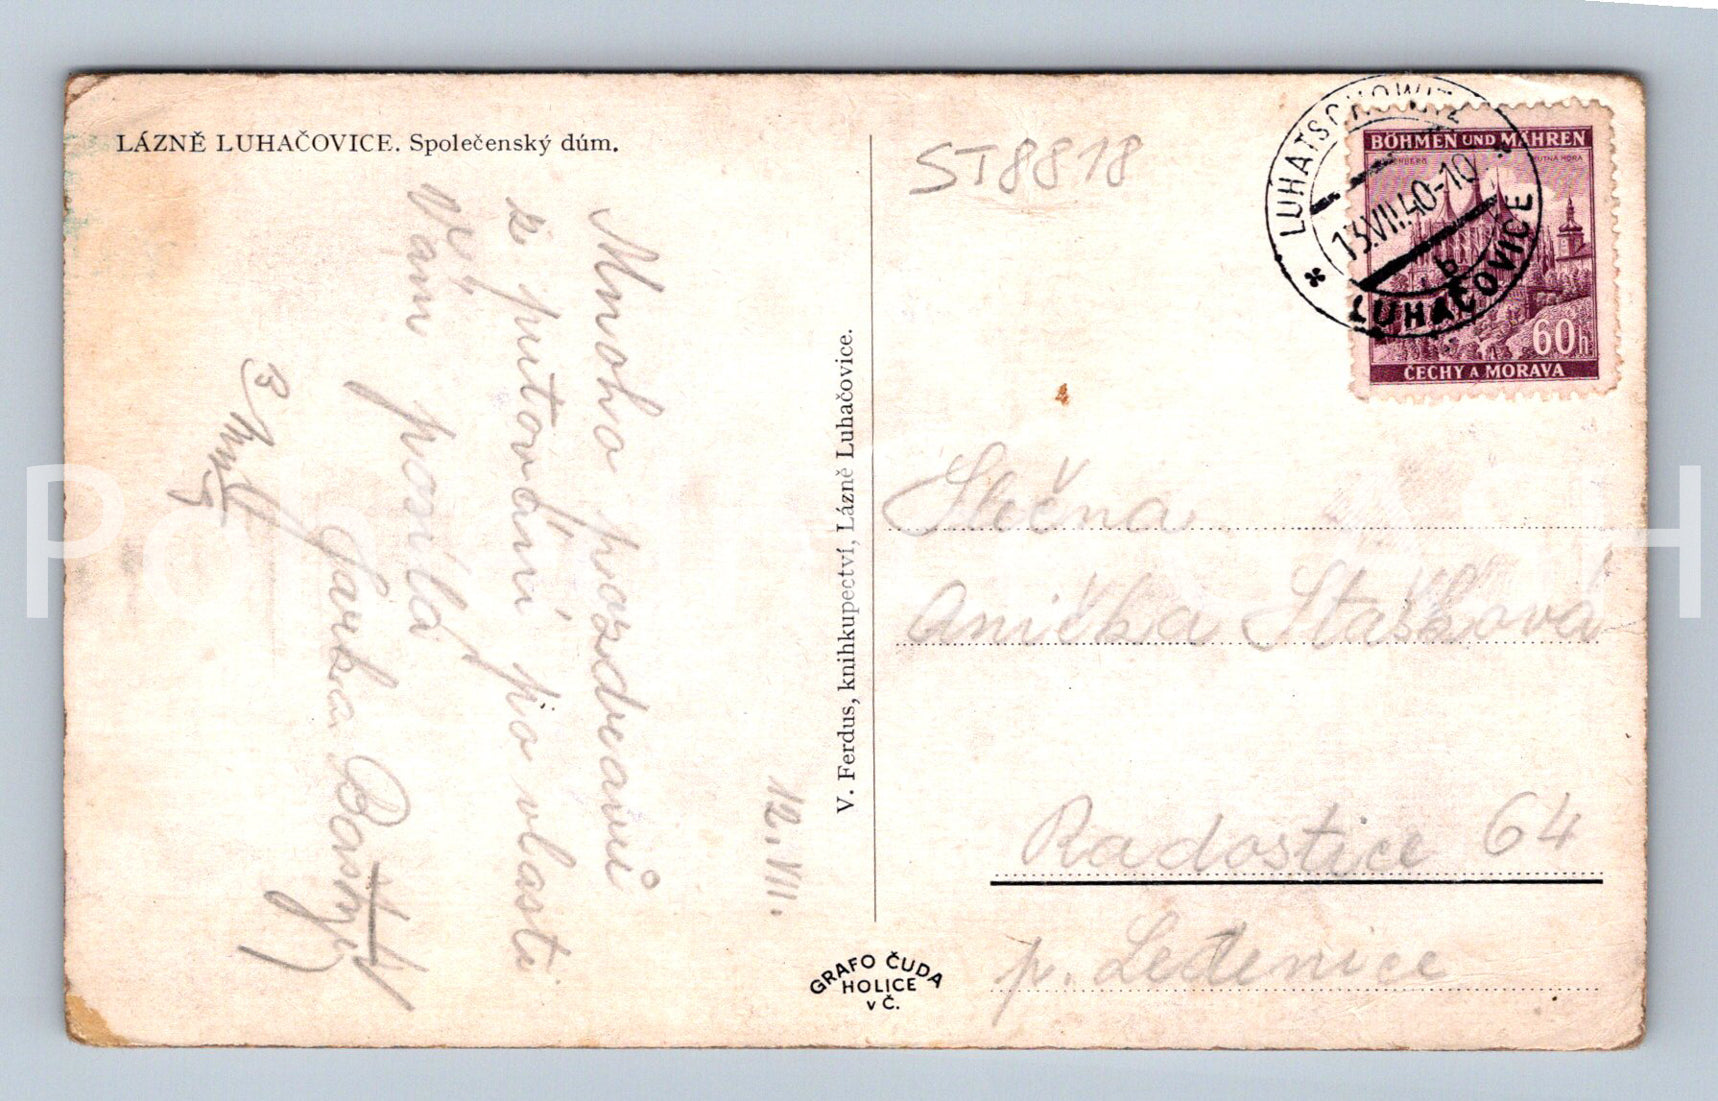 LÁZNĚ LUHAČOVICE. Společenský dům.
ST8818
LUHATSCHOWITZ
13.VII.40-10
b
LUHAČOVICE
BÖHMEN UND MÄHREN
KUTNÁ HORA
60h
ČECHY A MORAVA
12. VII.
Mnoho pozdravů
z putování po vlasti
Vám posílá
V. Ferdus, knihkupectví, Lázně Luhačovice.
Slečna
Anička Stašková
Radostice 64
p. Ledenice
GRAFO ČUDA
HOLICE
v Č.